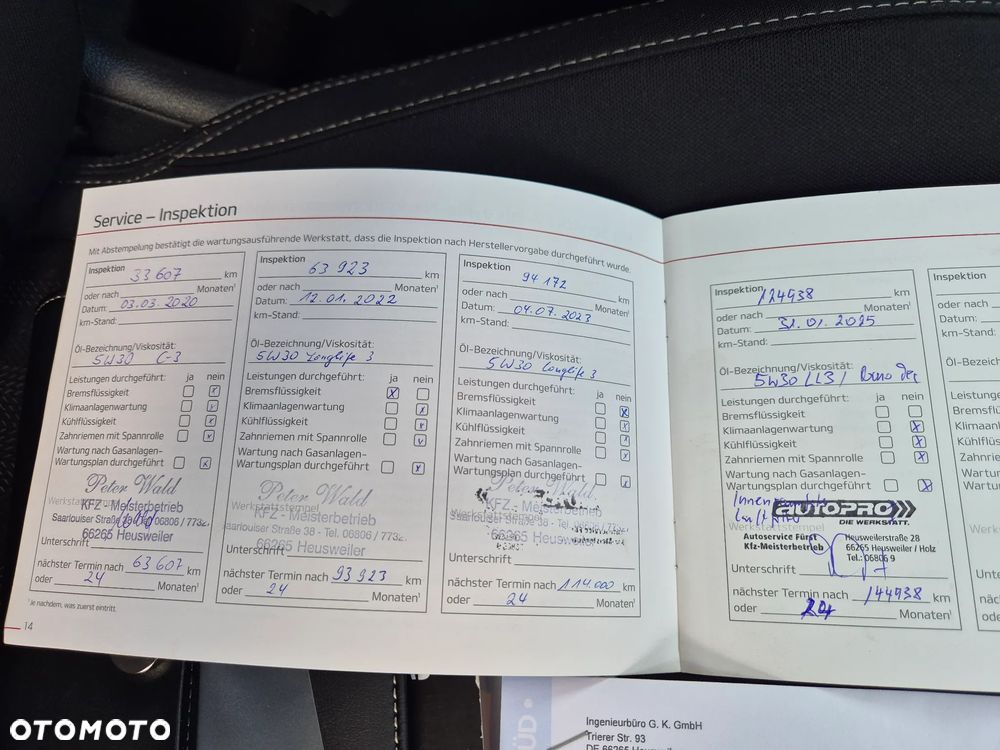 Service – Inspektion
Mit Abstempelung bestätigt die wartungsausführende Werkstatt, dass die Inspektion nach Herstellervorgabe durchgeführt wurde.
Inspektion 33 607 km
oder nach Monaten¹
Datum: 03.03.2020
km-Stand:
Öl-Bezeichnung/Viskosität:
5W30 C-3
Leistungen durchgeführt: ja nein
Bremsflüssigkeit x
Klimaanlagenwartung x
Kühlflüssigkeit x
Zahnriemen mit Spannrolle x
Wartung nach Gasanlagen-
Wartungsplan durchgeführt x
Peter Wald
KFZ - Meisterbetrieb
Werkstattstempel
Saarlouiser Straße 06806 / 7732
66265 Heusweiler
Unterschrift
nächster Termin nach 63 607 km
oder 24 Monaten¹
¹Je nachdem, was zuerst eintritt.
14
Inspektion 63 923 km
oder nach Monaten¹
Datum: 12.01.2022
km-Stand:
Öl-Bezeichnung/Viskosität:
5W30 Longlife 3
Leistungen durchgeführt: ja nein
Bremsflüssigkeit x
Klimaanlagenwartung x
Kühlflüssigkeit x
Zahnriemen mit Spannrolle x
Wartung nach Gasanlagen-
Wartungsplan durchgeführt x
Peter Wald
KFZ - Meisterbetrieb
Werkstattstempel
Saarlouiser Straße 38 - Tel. 06806 / 7732
66265 Heusweiler
Unterschrift
nächster Termin nach 93 923 km
oder 24 Monaten¹
Inspektion 94 172 km
oder nach Monaten¹
Datum: 04.07.2023
km-Stand:
Öl-Bezeichnung/Viskosität:
5W30 Longlife 3
Leistungen durchgeführt: ja nein
Bremsflüssigkeit x
Klimaanlagenwartung x
Kühlflüssigkeit x
Zahnriemen mit Spannrolle x
Wartung nach Gasanlagen-
Wartungsplan durchgeführt x
Peter Wald
KFZ - Meisterbetrieb
Werkstattstempel
Saarlouiser Straße 38 - Tel. 06806 / 7732
66265 Heusweiler
Unterschrift
nächster Termin nach 114.000 km
oder 24 Monaten¹
Inspektion 124938 km
oder nach Monaten¹
Datum: 31.01.2025
km-Stand:
Öl-Bezeichnung/Viskosität:
5W30 LL3/
Leistungen durchgeführt: ja nein
Bremsflüssigkeit
Klimaanlagenwartung x
Kühlflüssigkeit x
Zahnriemen mit Spannrolle x
Wartung nach Gasanlagen-
Wartungsplan durchgeführt x
autoPRO
DIE WERKSTATT.
Autoservice Fürst Heusweilerstraße 28
Kfz-Meisterbetrieb 66265 Heusweiler / Holz
Tel.: 06806 9
Unterschrift
nächster Termin nach 144938 km
oder 24 Monaten¹
Inspektion
oder nach
Datum:
km-Stand:
Öl-Bezeich
Leistungen
Bremsflü
Klimaanla
Kühlflüssi
Zahnriem
Wartung
Wartungs
Ingenieurbüro G. K. GmbH
Trierer Str. 93
DE 66265 Heusweiler
OTOMOTO